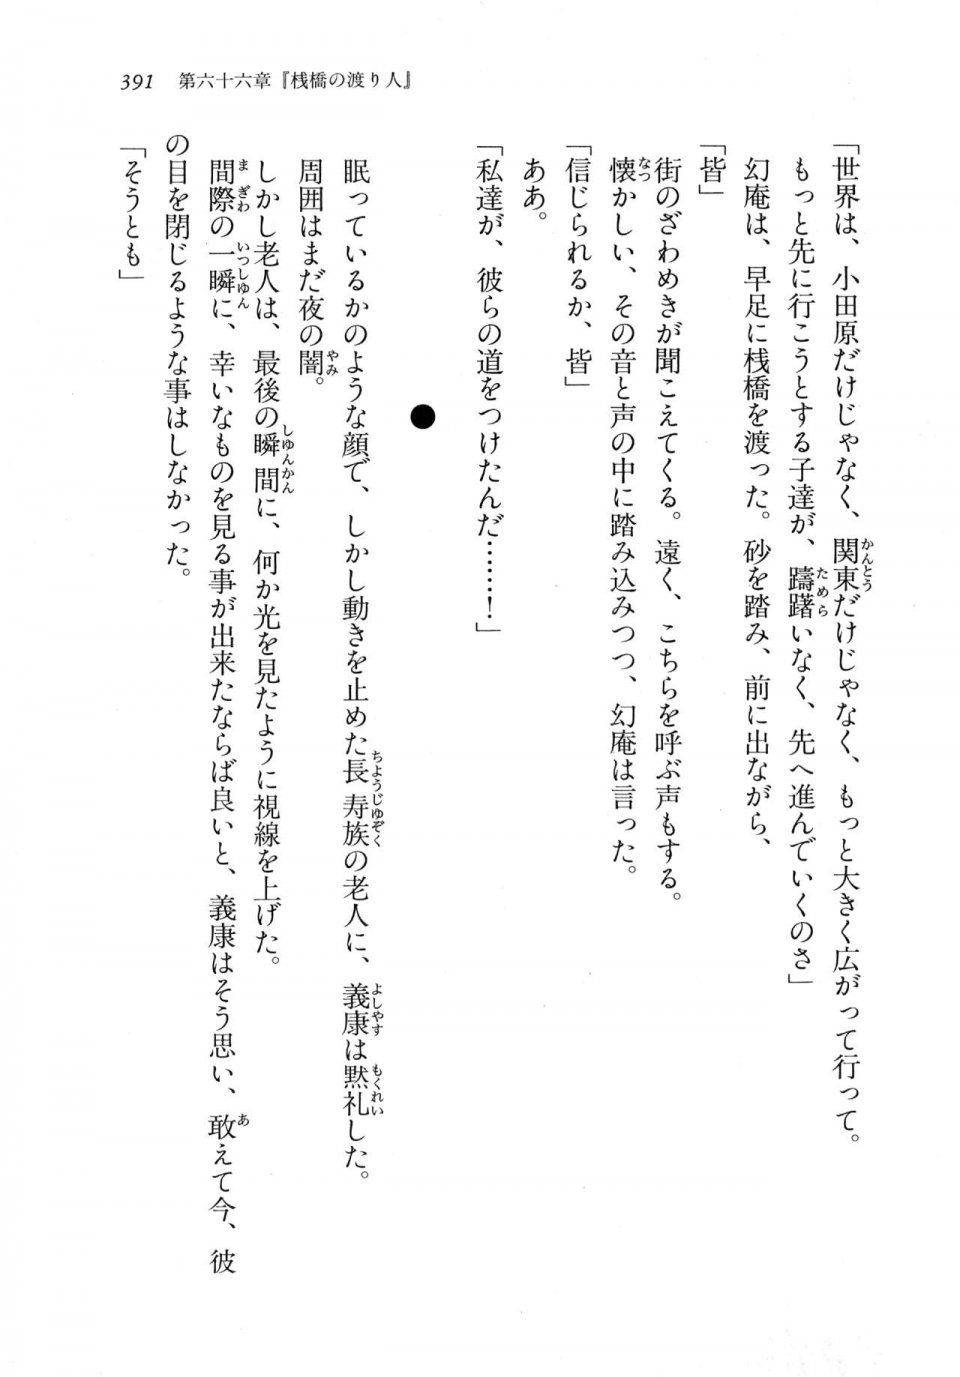 391　第六十六章『桟橋の渡り人』
「世界は、小田原だけじゃなく、関東だけじゃなく、もっと大きく広がって行って。
もっと先に行こうとする子達が、躊躇いなく、先へ進んでいくのさ」
幻庵は、早足に桟橋を渡った。砂を踏み、前に出ながら、
「皆」
街のざわめきが聞こえてくる。遠く、こちらを呼ぶ声もする。
懐かしい、その音と声の中に踏み込みつつ、幻庵は言った。
「信じられるか、皆」
ああ。
「私達が、彼らの道をつけたんだ……！」
●
眠っているかのような顔で、しかし動きを止めた長寿族の老人に、義康は黙礼した。
周囲はまだ夜の闇。
しかし老人は、最後の瞬間に、何か光を見たように視線を上げた。
間際の一瞬に、幸いなものを見る事が出来たならば良いと、義康はそう思い、敢えて今、彼
の目を閉じるような事はしなかった。
「そうとも」